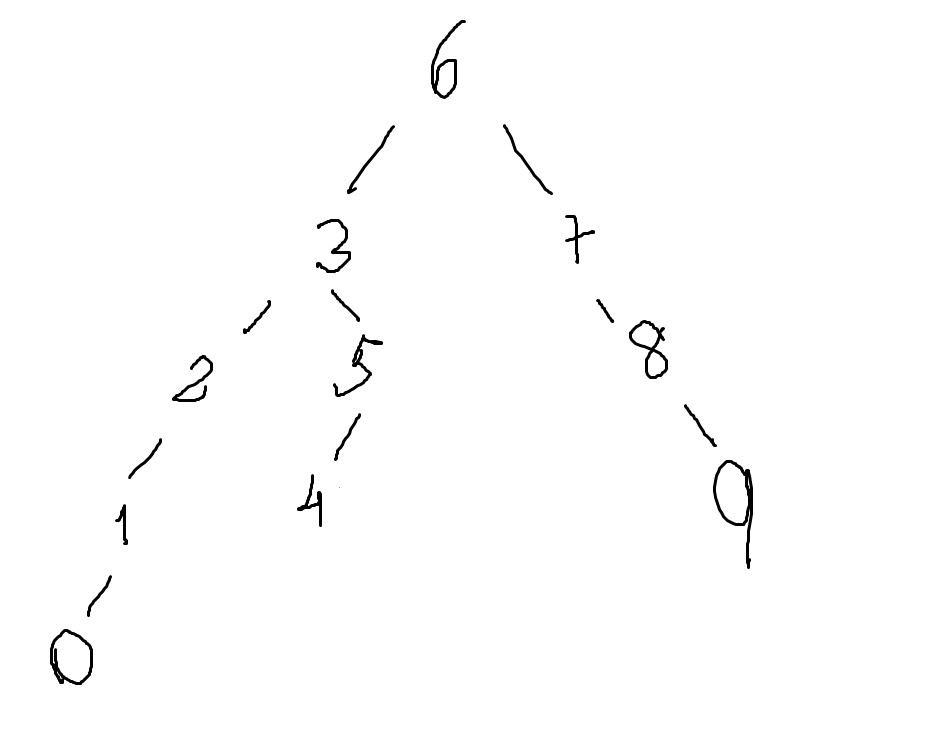 6
3 7
2 5 8
1 4 9
0